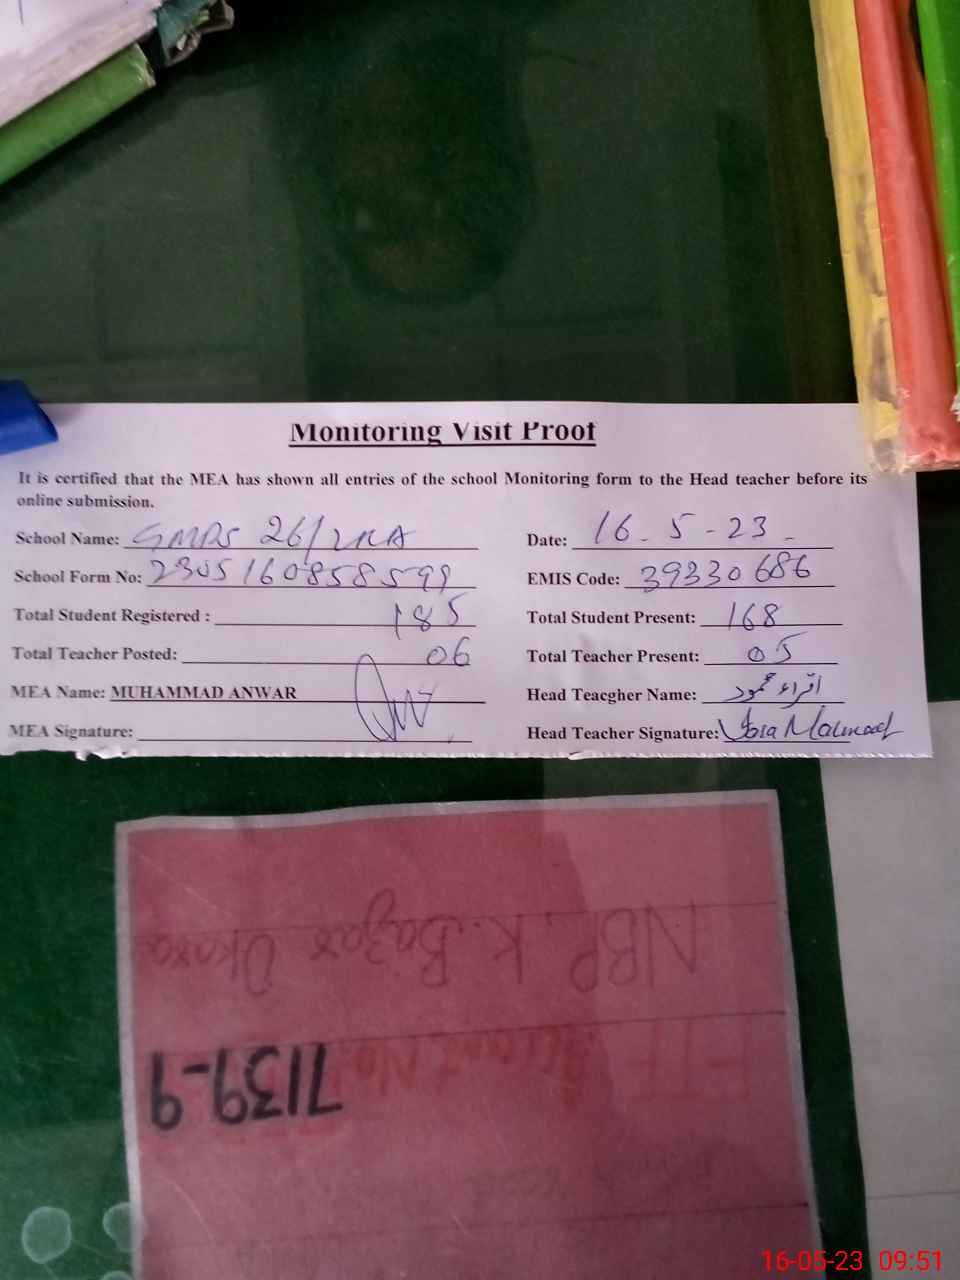 Monitoring Visit Proof
It is certified that the MEA has shown all entries of the school Monitoring form to the Head teacher before its
online submission.
School Name: GMPS 26/2RA Date: 16-5-23
School Form No: 2305160858599 EMIS Code: 39330686
Total Student Registered : 185 Total Student Present: 168
Total Teacher Posted: 06 Total Teacher Present: 05
MEA Name: MUHAMMAD ANWAR Head Teacgher Name: اقراء محمود
MEA Signature: Head Teacher Signature: Iqra Mahmood
NBP. K. Bazar Okara
7139-9
16-05-23 09:51